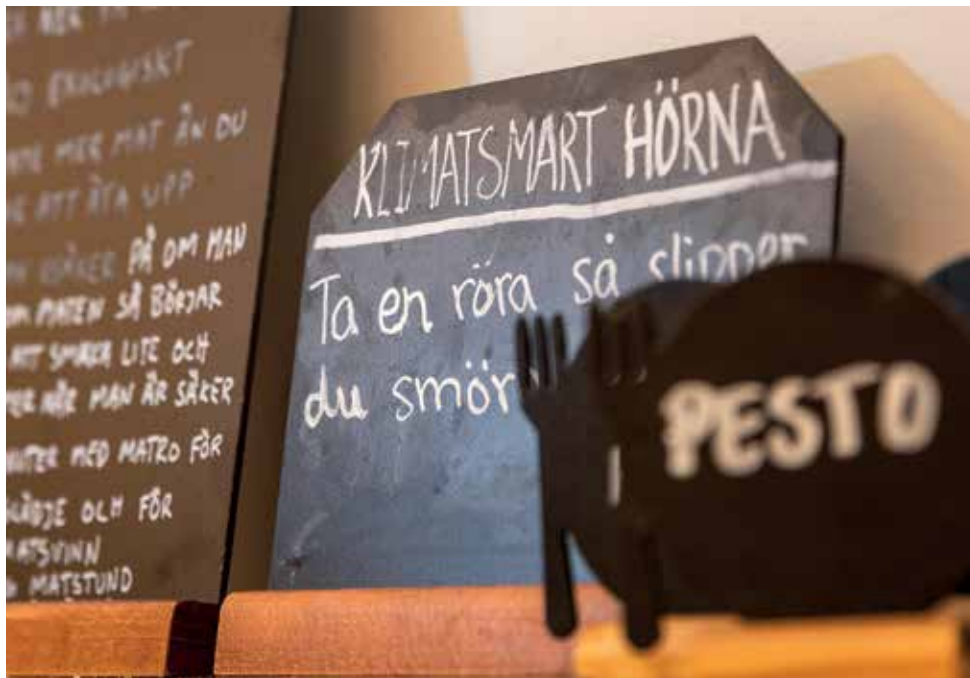 EKOLOGISKT
MER MAT ÄN DU
ATT ÄTA UPP
SÄKER PÅ OM MAN
MATEN SÅ BÖRJAR
ATT SMAKA LITE OCH
NÄR MAN ÄR SÄKER
MED MATRO FÖR
OCH FÖR
MATSVINN
MATSTUND
KLIMATSMART HÖRNA
Ta en röra så slipper
du smör
PESTO